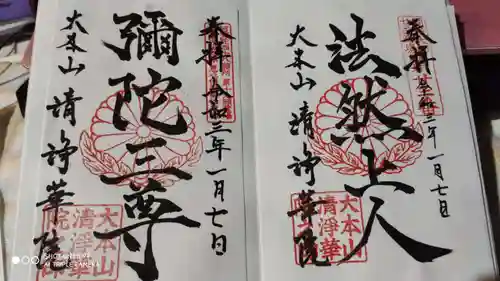 奉拝
法然上人
令和三年一月七日
大本山 清浄華院
大本山
清浄華
院印
奉拝 令和三年一月七日
彌陀三尊
大本山 清浄華院
大本山
清浄華
院印
SHOT ON REDMI
AI TRIPLE CAMERA